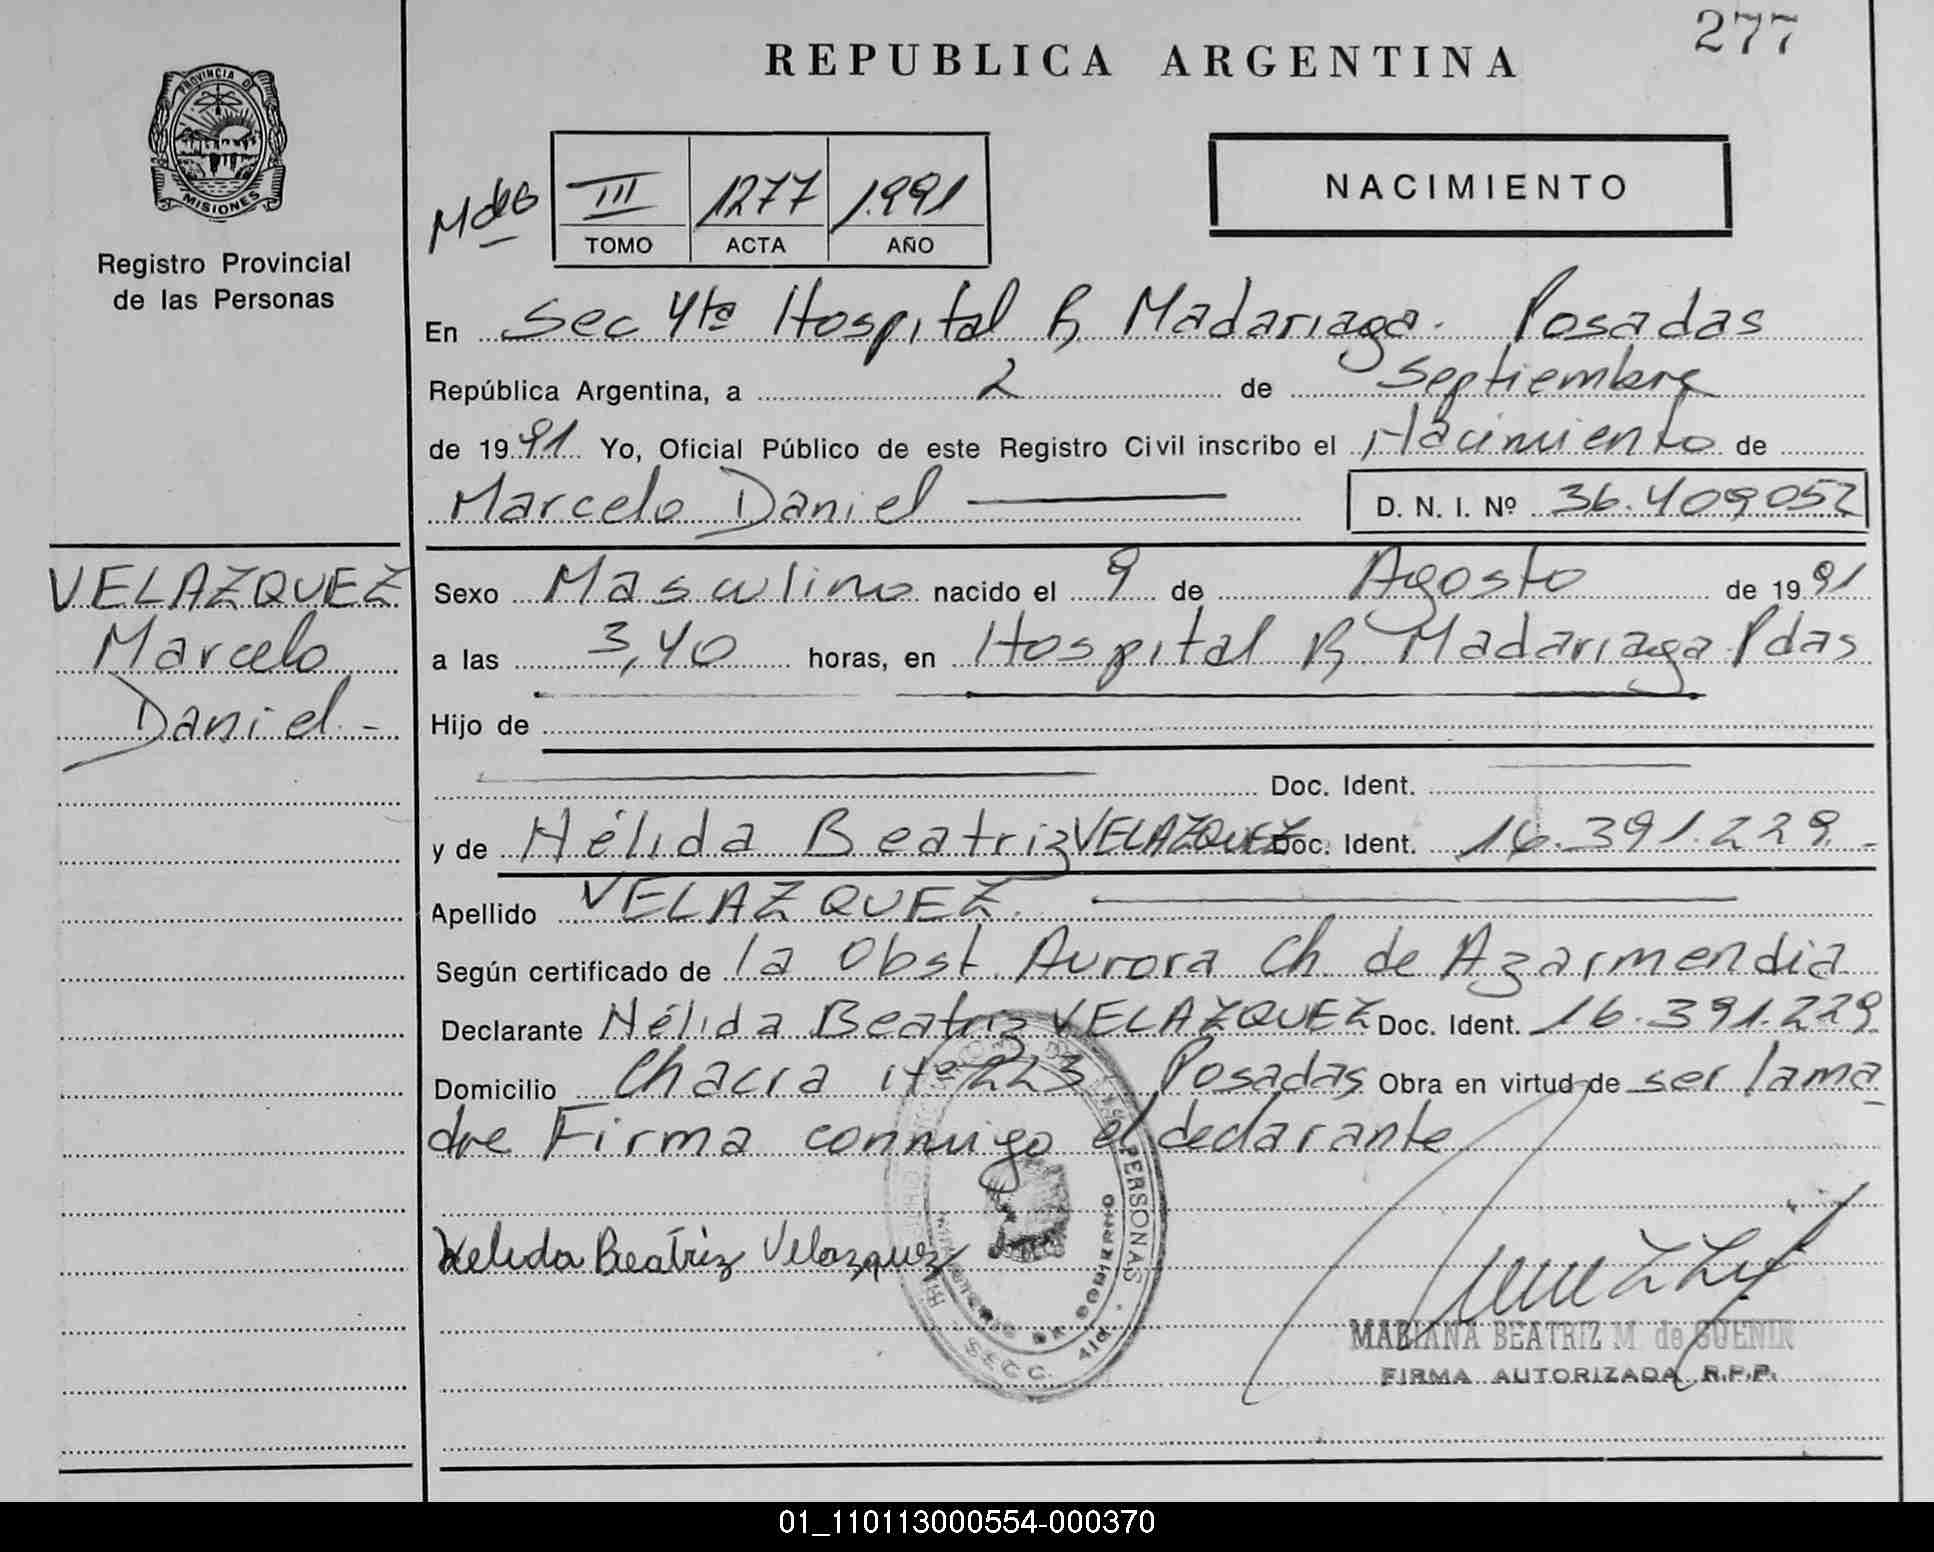 277
REPUBLICA ARGENTINA
PROVINCIA DE
MISIONES
Registro Provincial
de las Personas
NACIMIENTO
Mdes III 1277 1.991
TOMO ACTA AÑO
En Sec 4ta Hospital R Madariaga. Posadas
República Argentina, a 2 de Septiembre
de 1991 Yo, Oficial Público de este Registro Civil inscribo el Nacimiento de
Marcelo Daniel D. N. I. Nº 36.409052
VELAZQUEZ
Marcelo
Daniel.-
Sexo Masculino nacido el 9 de Agosto de 1991
a las 3,40 horas, en Hospital R Madariaga Pdas
Hijo de
Doc. Ident.
y de Nélida Beatriz VELAZQUEZ Doc. Ident. 16.391.229.-
Apellido VELAZQUEZ.
Según certificado de la Obst. Aurora Ch. de Azarmendia
Declarante Nélida Beatriz VELAZQUEZ Doc. Ident. 16.391.229.
Domicilio Chacra Nº 223 Posadas Obra en virtud de ser la ma
dre Firma conmigo el declarante
Nelida Beatriz Velazquez
PERSONAS
MINISTERIO DE GOBIERNO
MARIANA BEATRIZ M. de GUENIN
FIRMA AUTORIZADA R.P.P.
01_110113000554-000370